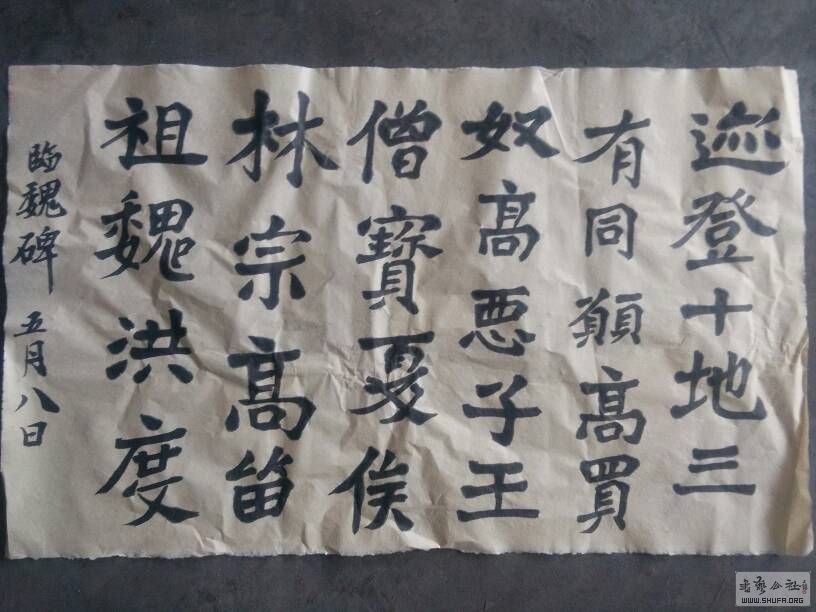 迹登十地三
有同願高買
奴高悪子王
僧寶夏侯
林宗高留
祖魏洪度
临魏碑 五月八日
WWW.SHUFA.ORG